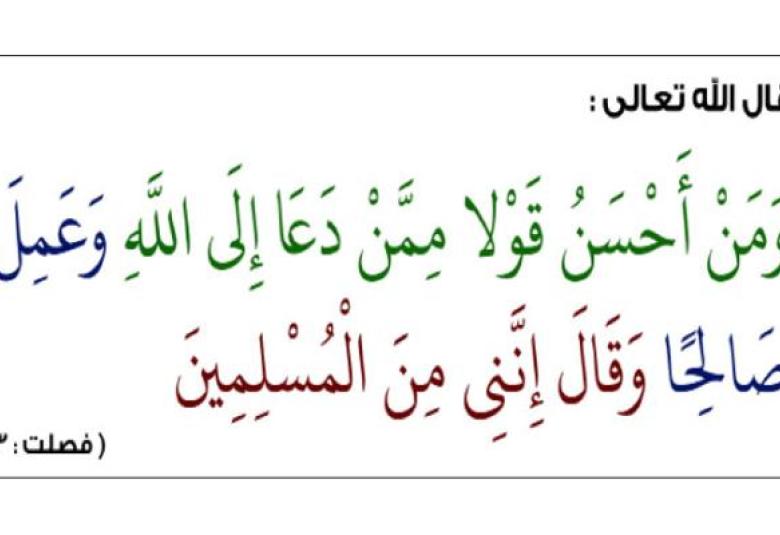 قال الله تعالى :
وَمَنْ أَحْسَنُ قَوْلا مِمَّنْ دَعَا إِلَى اللَّهِ وَعَمِلَ
صَالِحًا وَقَالَ إِنَّنِي مِنَ الْمُسْلِمِينَ
( فصلت :